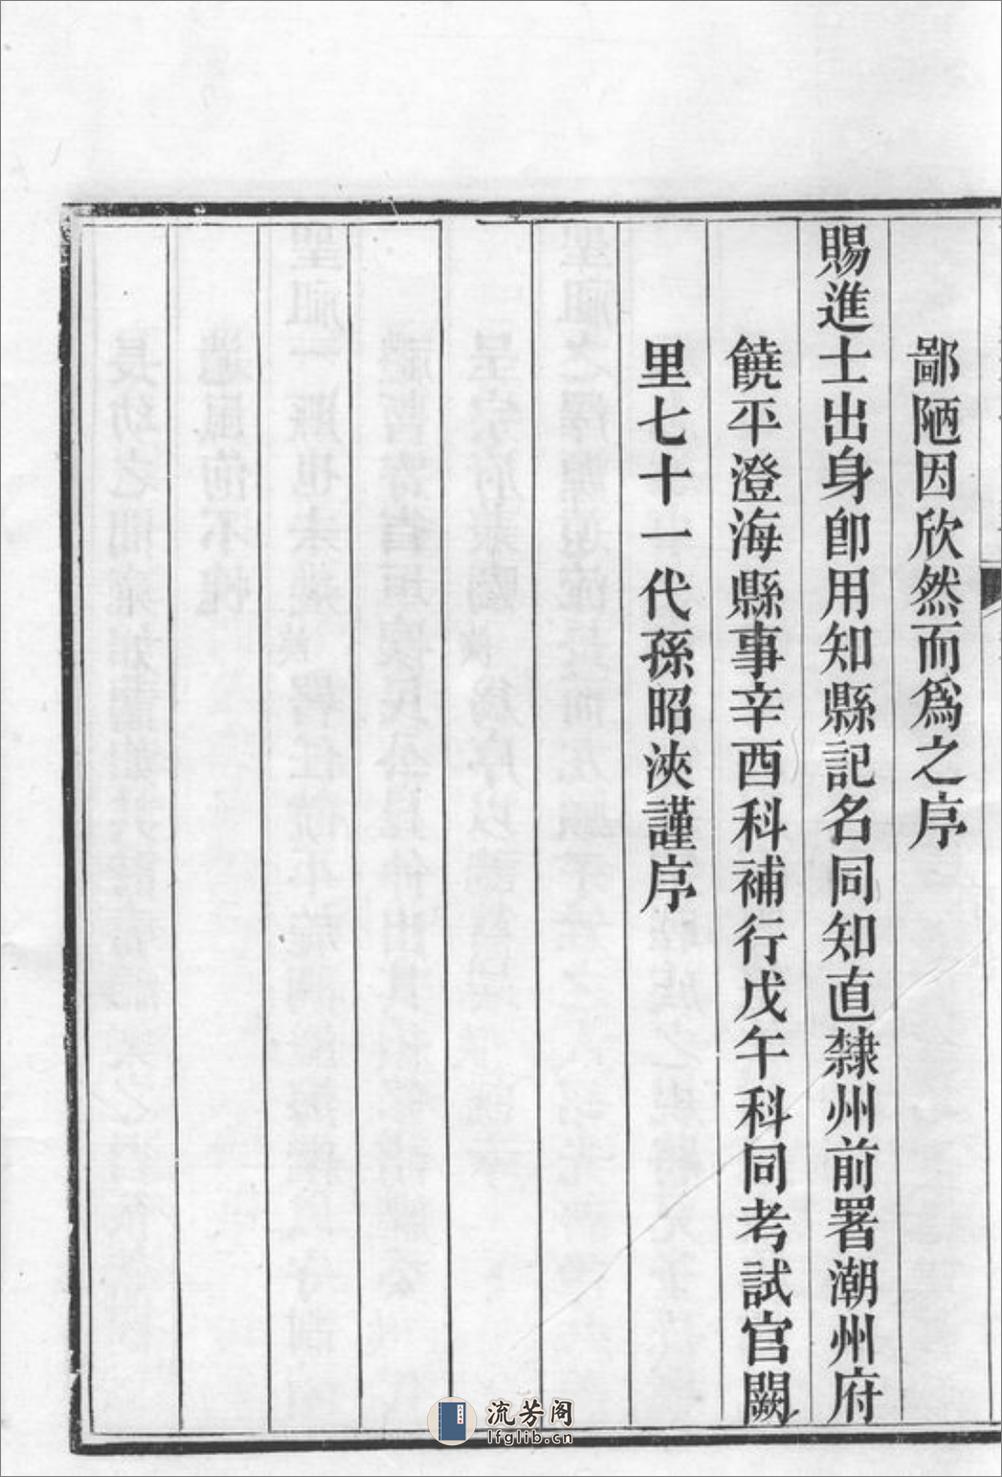 鄙陋因欣然而爲之序
賜進士出身卽用知縣記名同知直隸州前署潮州府
饒平澄海縣事辛酉科補行戊午科同考試官闕
里七十一代孫昭浹謹序
流芳阁
lfglib.cn